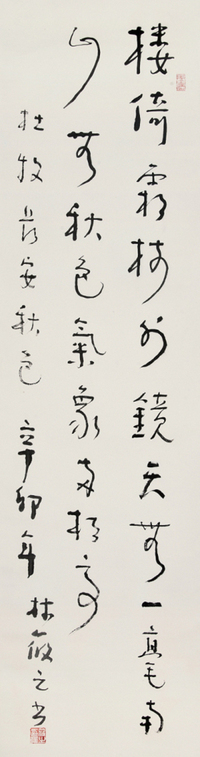 樓倚霜樹外鏡天無一毫南
山與秋色氣象兩相高
杜牧長安秋色 辛卯年 林筱之書